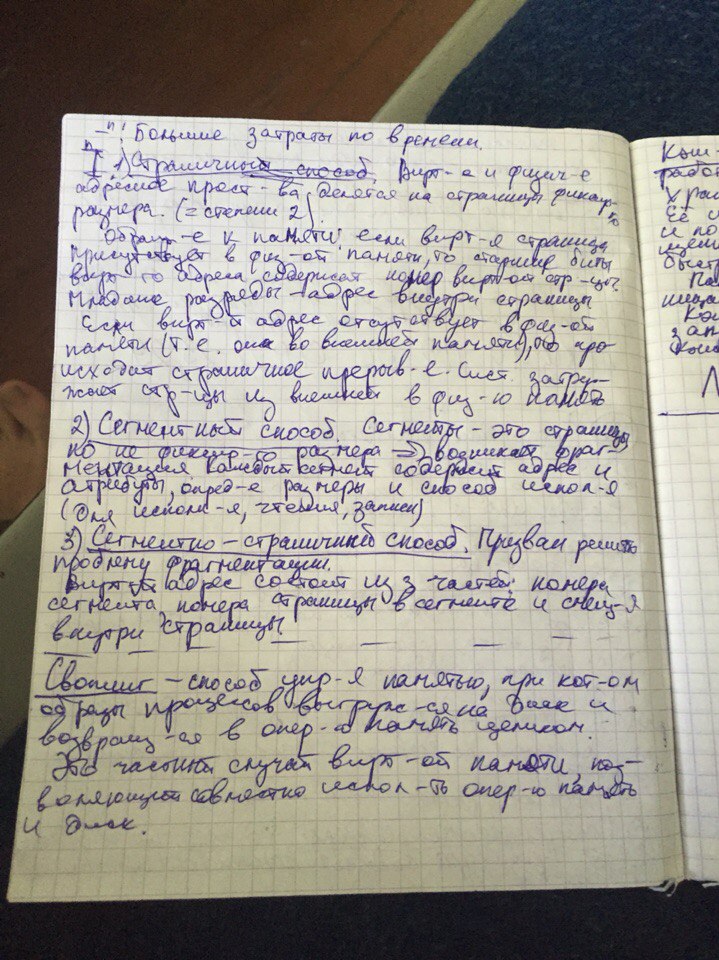 –"! Большие затраты по времени.
I 1) Страничный способ. Вирт-е и физич-е
адресное прост-ва делятся на страницы фиксир-го
размера. (= степени 2)
Обращ-е к памяти: если вирт-я страница
присутствует в физ-ой памяти, то старшие биты
вирт-го адреса содержат номер вирт-ой стр-цы.
Младшие разряды – адрес внутри страницы
Если вирт-й адрес отсутствует в физ-ой
памяти (т.е. она во внешней памяти), то про-
исходит страничное прерыв-е. Сист. загру-
жает стр-цы из внешней в физ-ю память
2) Сегментный способ. Сегменты – это страницы,
но не фиксир-го размера => возникает фраг-
ментация. Каждый сегмент содержит адрес и
атрибуты, опред-е размеры и способ испол-я
(для исполн-я, чтения, записи)
3) Сегментно-страничный способ. Призван решить
проблему фрагментации.
Виртуй адрес состоит из 3 частей номера
сегмента, номера страницы в сегменте и смещ-я
внутри страницы
Свопинг – способ упр-я памятью, при кот-ом
образы процессов выгруж-ся на диск и
возвращ-ся в опер-ю память целиком.
Это частный случай вирт-ой памяти, поз-
воляющий совместно испол-ть опер-ю память
и диск.
Кэш-
работ
хран
Её и
и по
быст